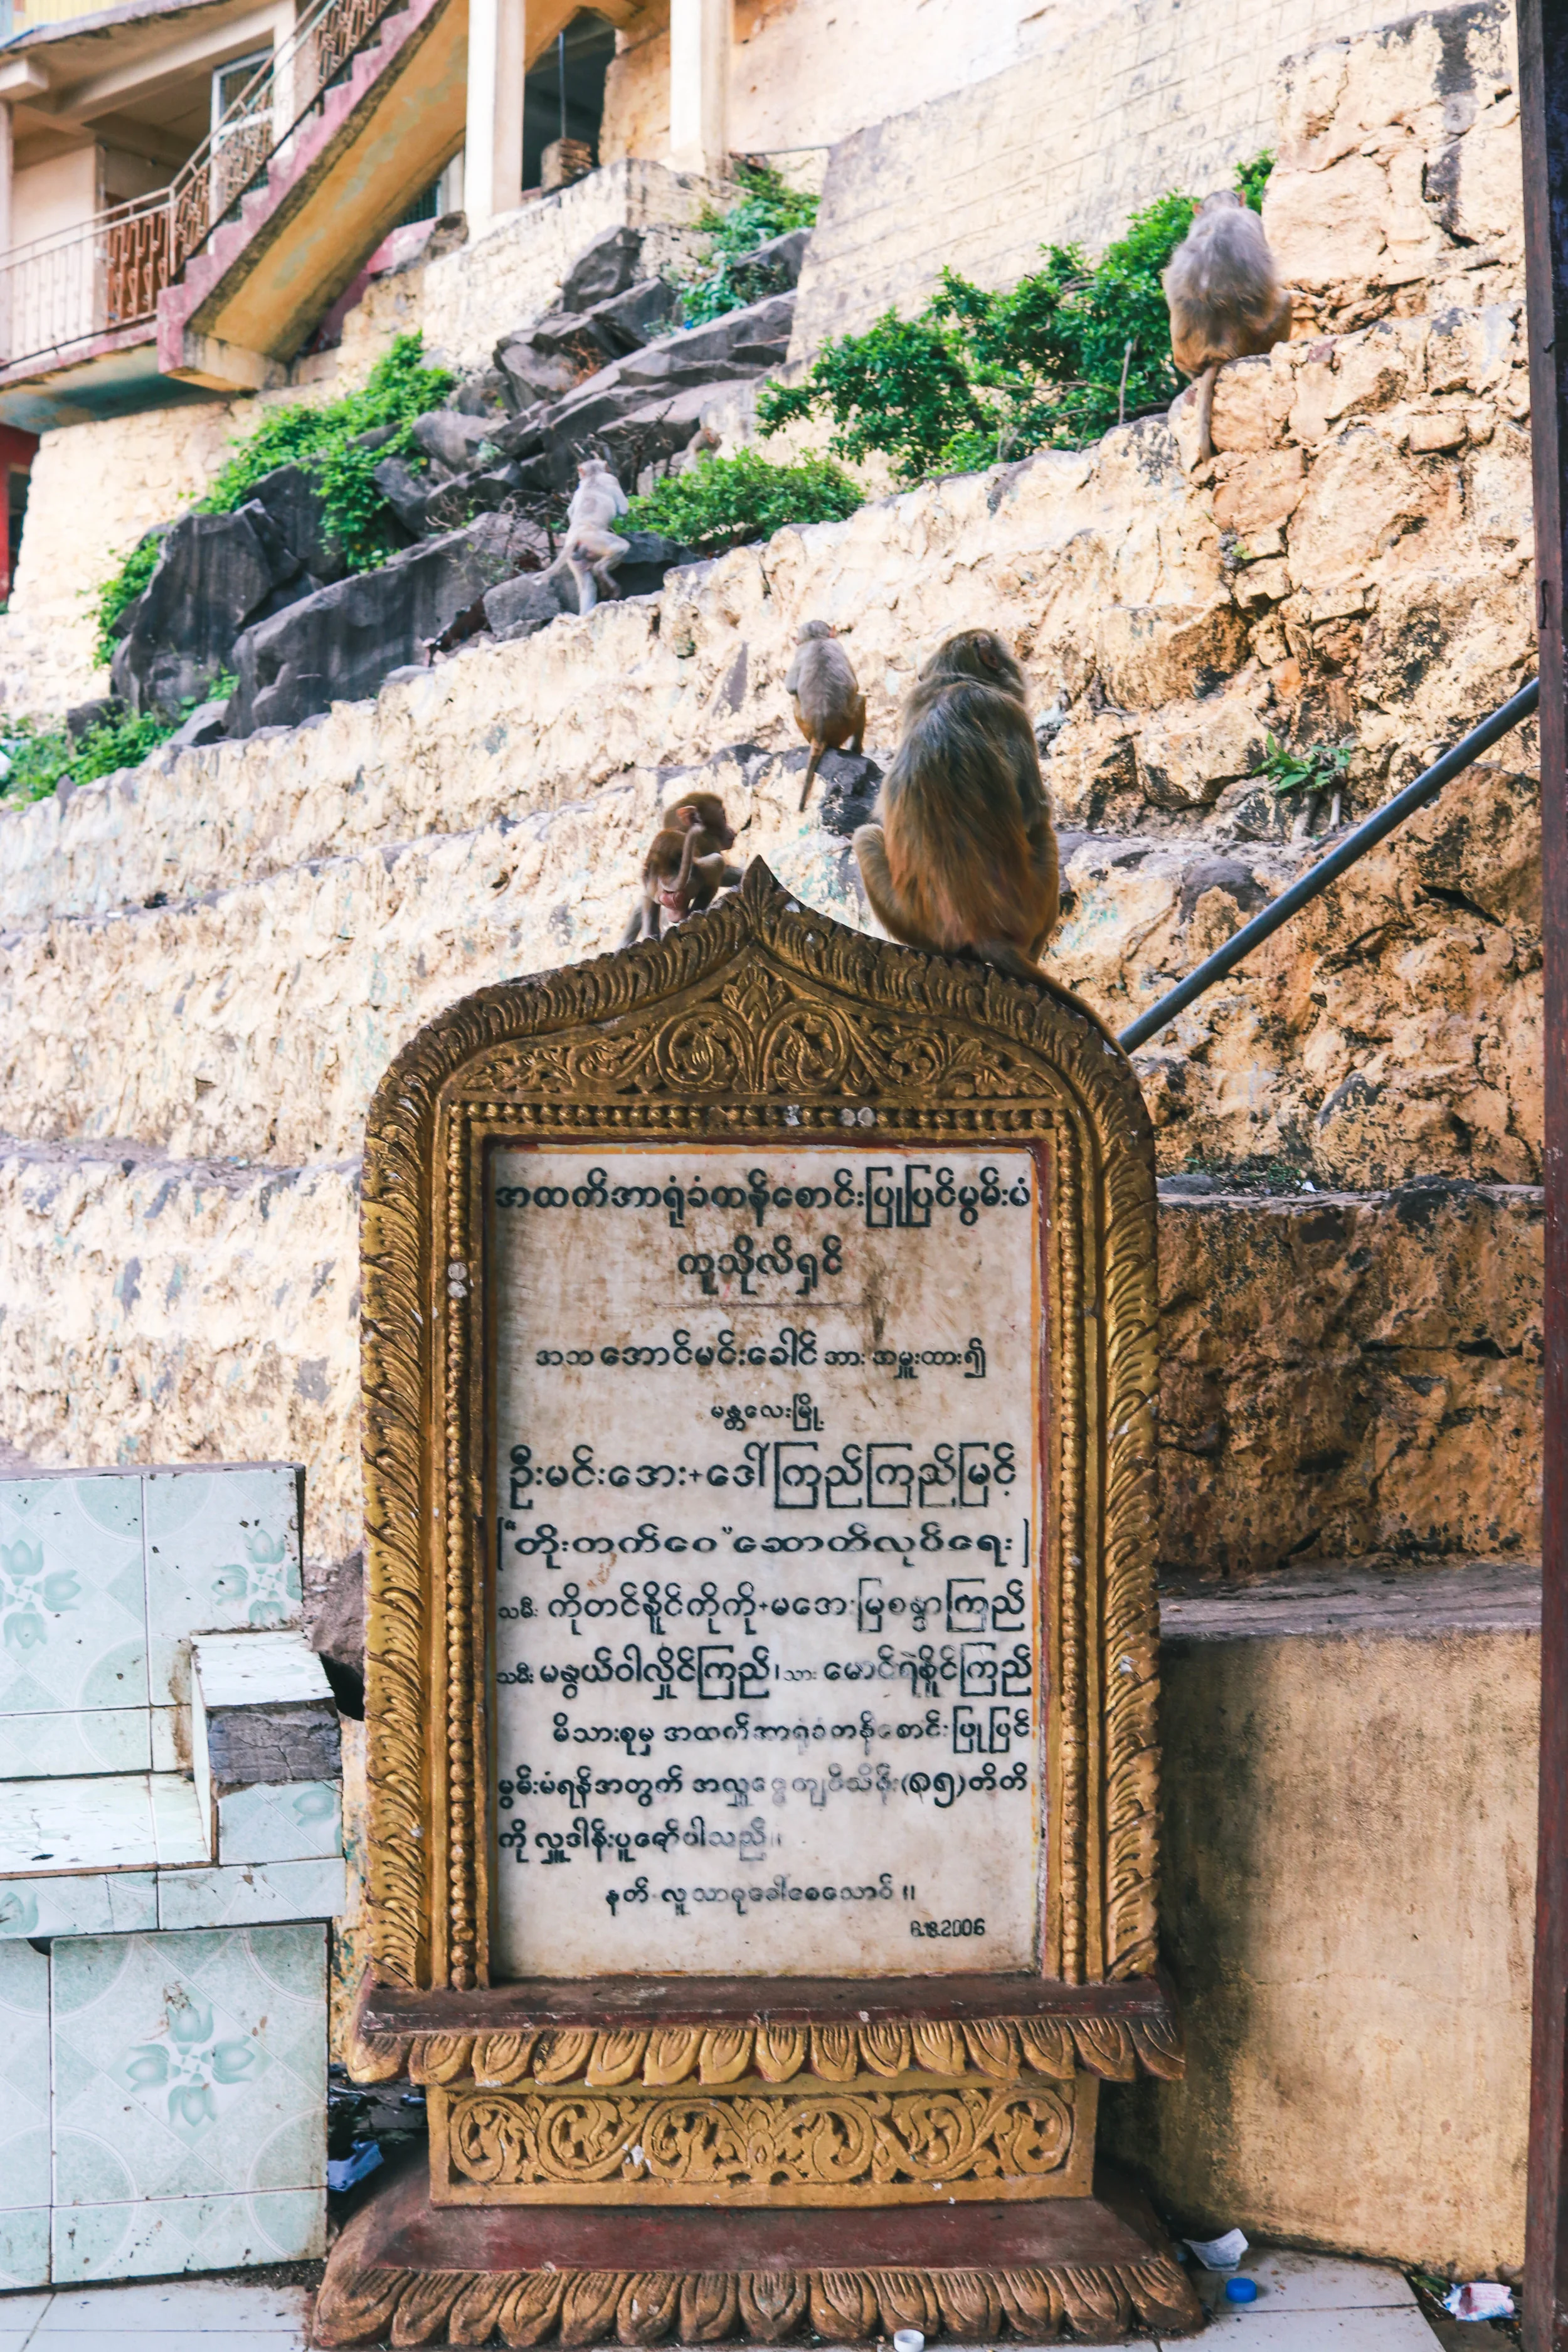 အထက်အာရုံခံတန်စောင်းပြုပြင်မွမ်းမံ
ကူသိုလ်ရှင်
အဘအောင်မင်းခေါင်အားအမှူးထား၍
မန္တလေးမြို့
ဦးမင်းအေး+ဒေါ်ကြည်ကြည်မြင့်
("တိုးတက်ဝေ"ဆောက်လုပ်ရေး)
သမီး ကိုတင်နိူင်ကိုကို+မအေးမြစန္ဒာကြည်
သမီး မနွယ်ဝါလှိုင်ကြည်၊သား မောင်ရဲနိူင်ကြည်
မိသားစုမှ အထက်အာရုံခံတန်စောင်းပြုပြင်
မွမ်းမံရန်အတွက် အလှူငွေကျပ်သိန်း(၈၅)တိတိ
ကို လှူဒါန်းပူဇော်ပါသည်။
နတ် လူသာဓုခေါ်စေသောဝ် ။
6.8.2006